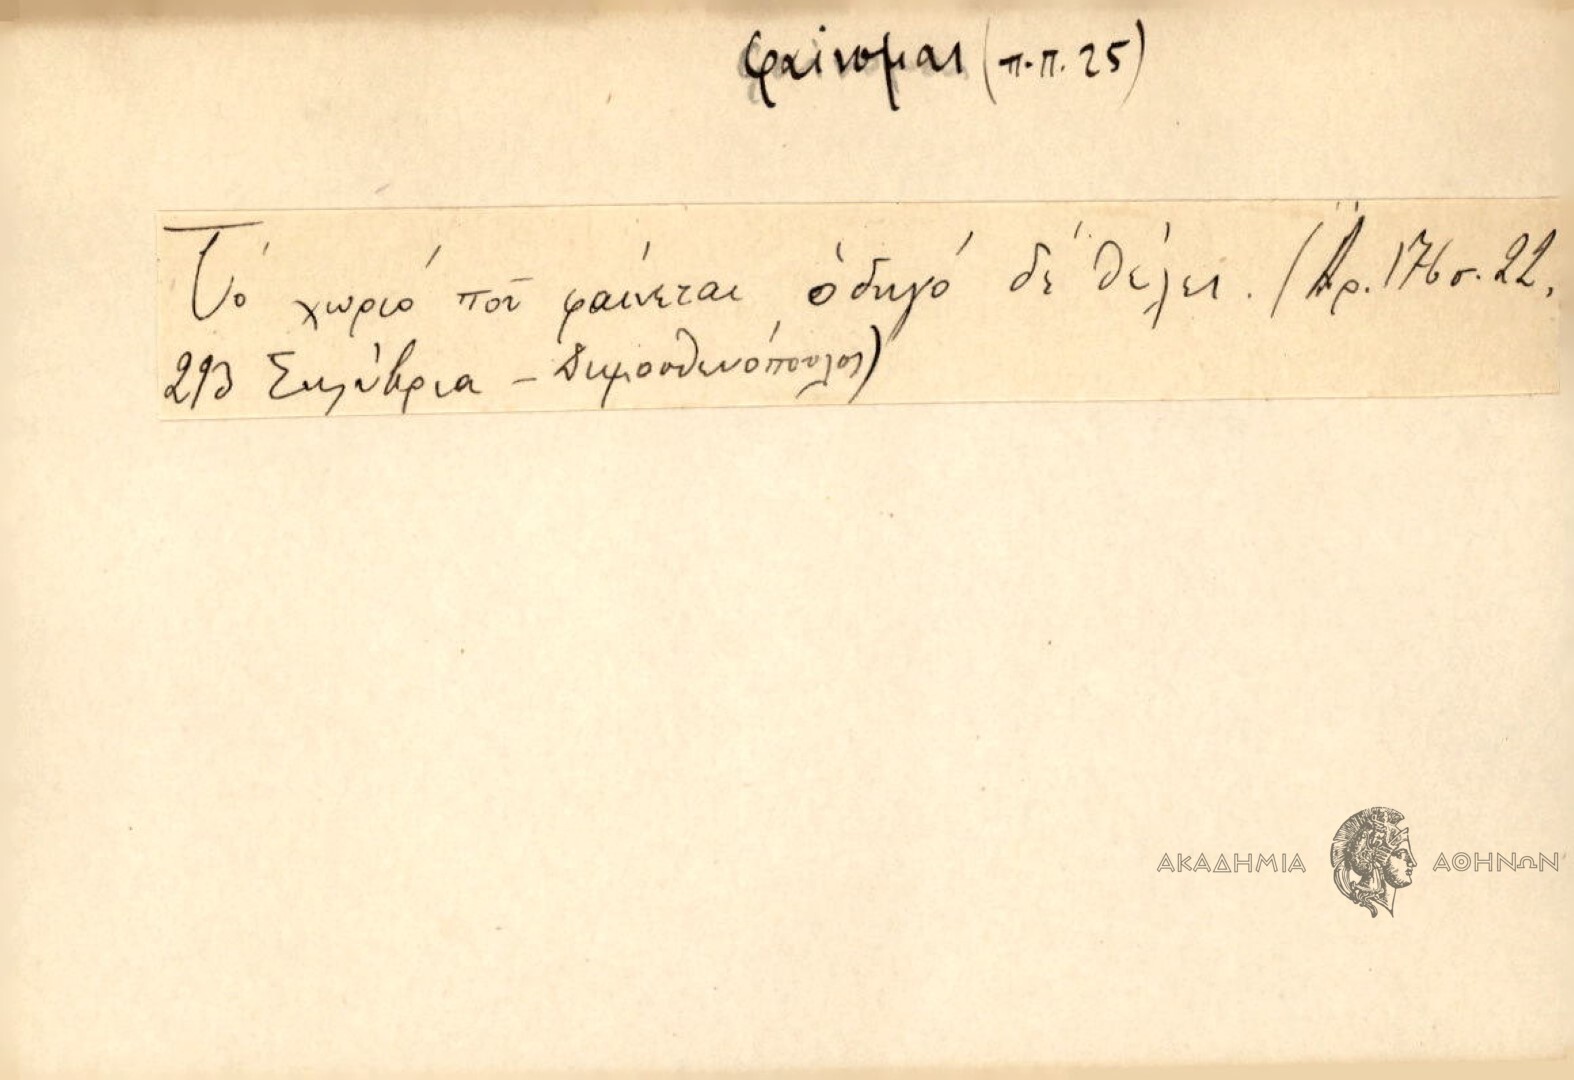 φαίνομαι (π.π. 25)
Τό χωριό ποῦ φαίνεται ὁδηγό δέ θέλει. (Ἀρ. 176 σ. 22,
293 Σηλύβρια - Δημοσθενόπουλος)
ΑΚΑΔΗΜΙΑ ΑΘΗΝΩΝ